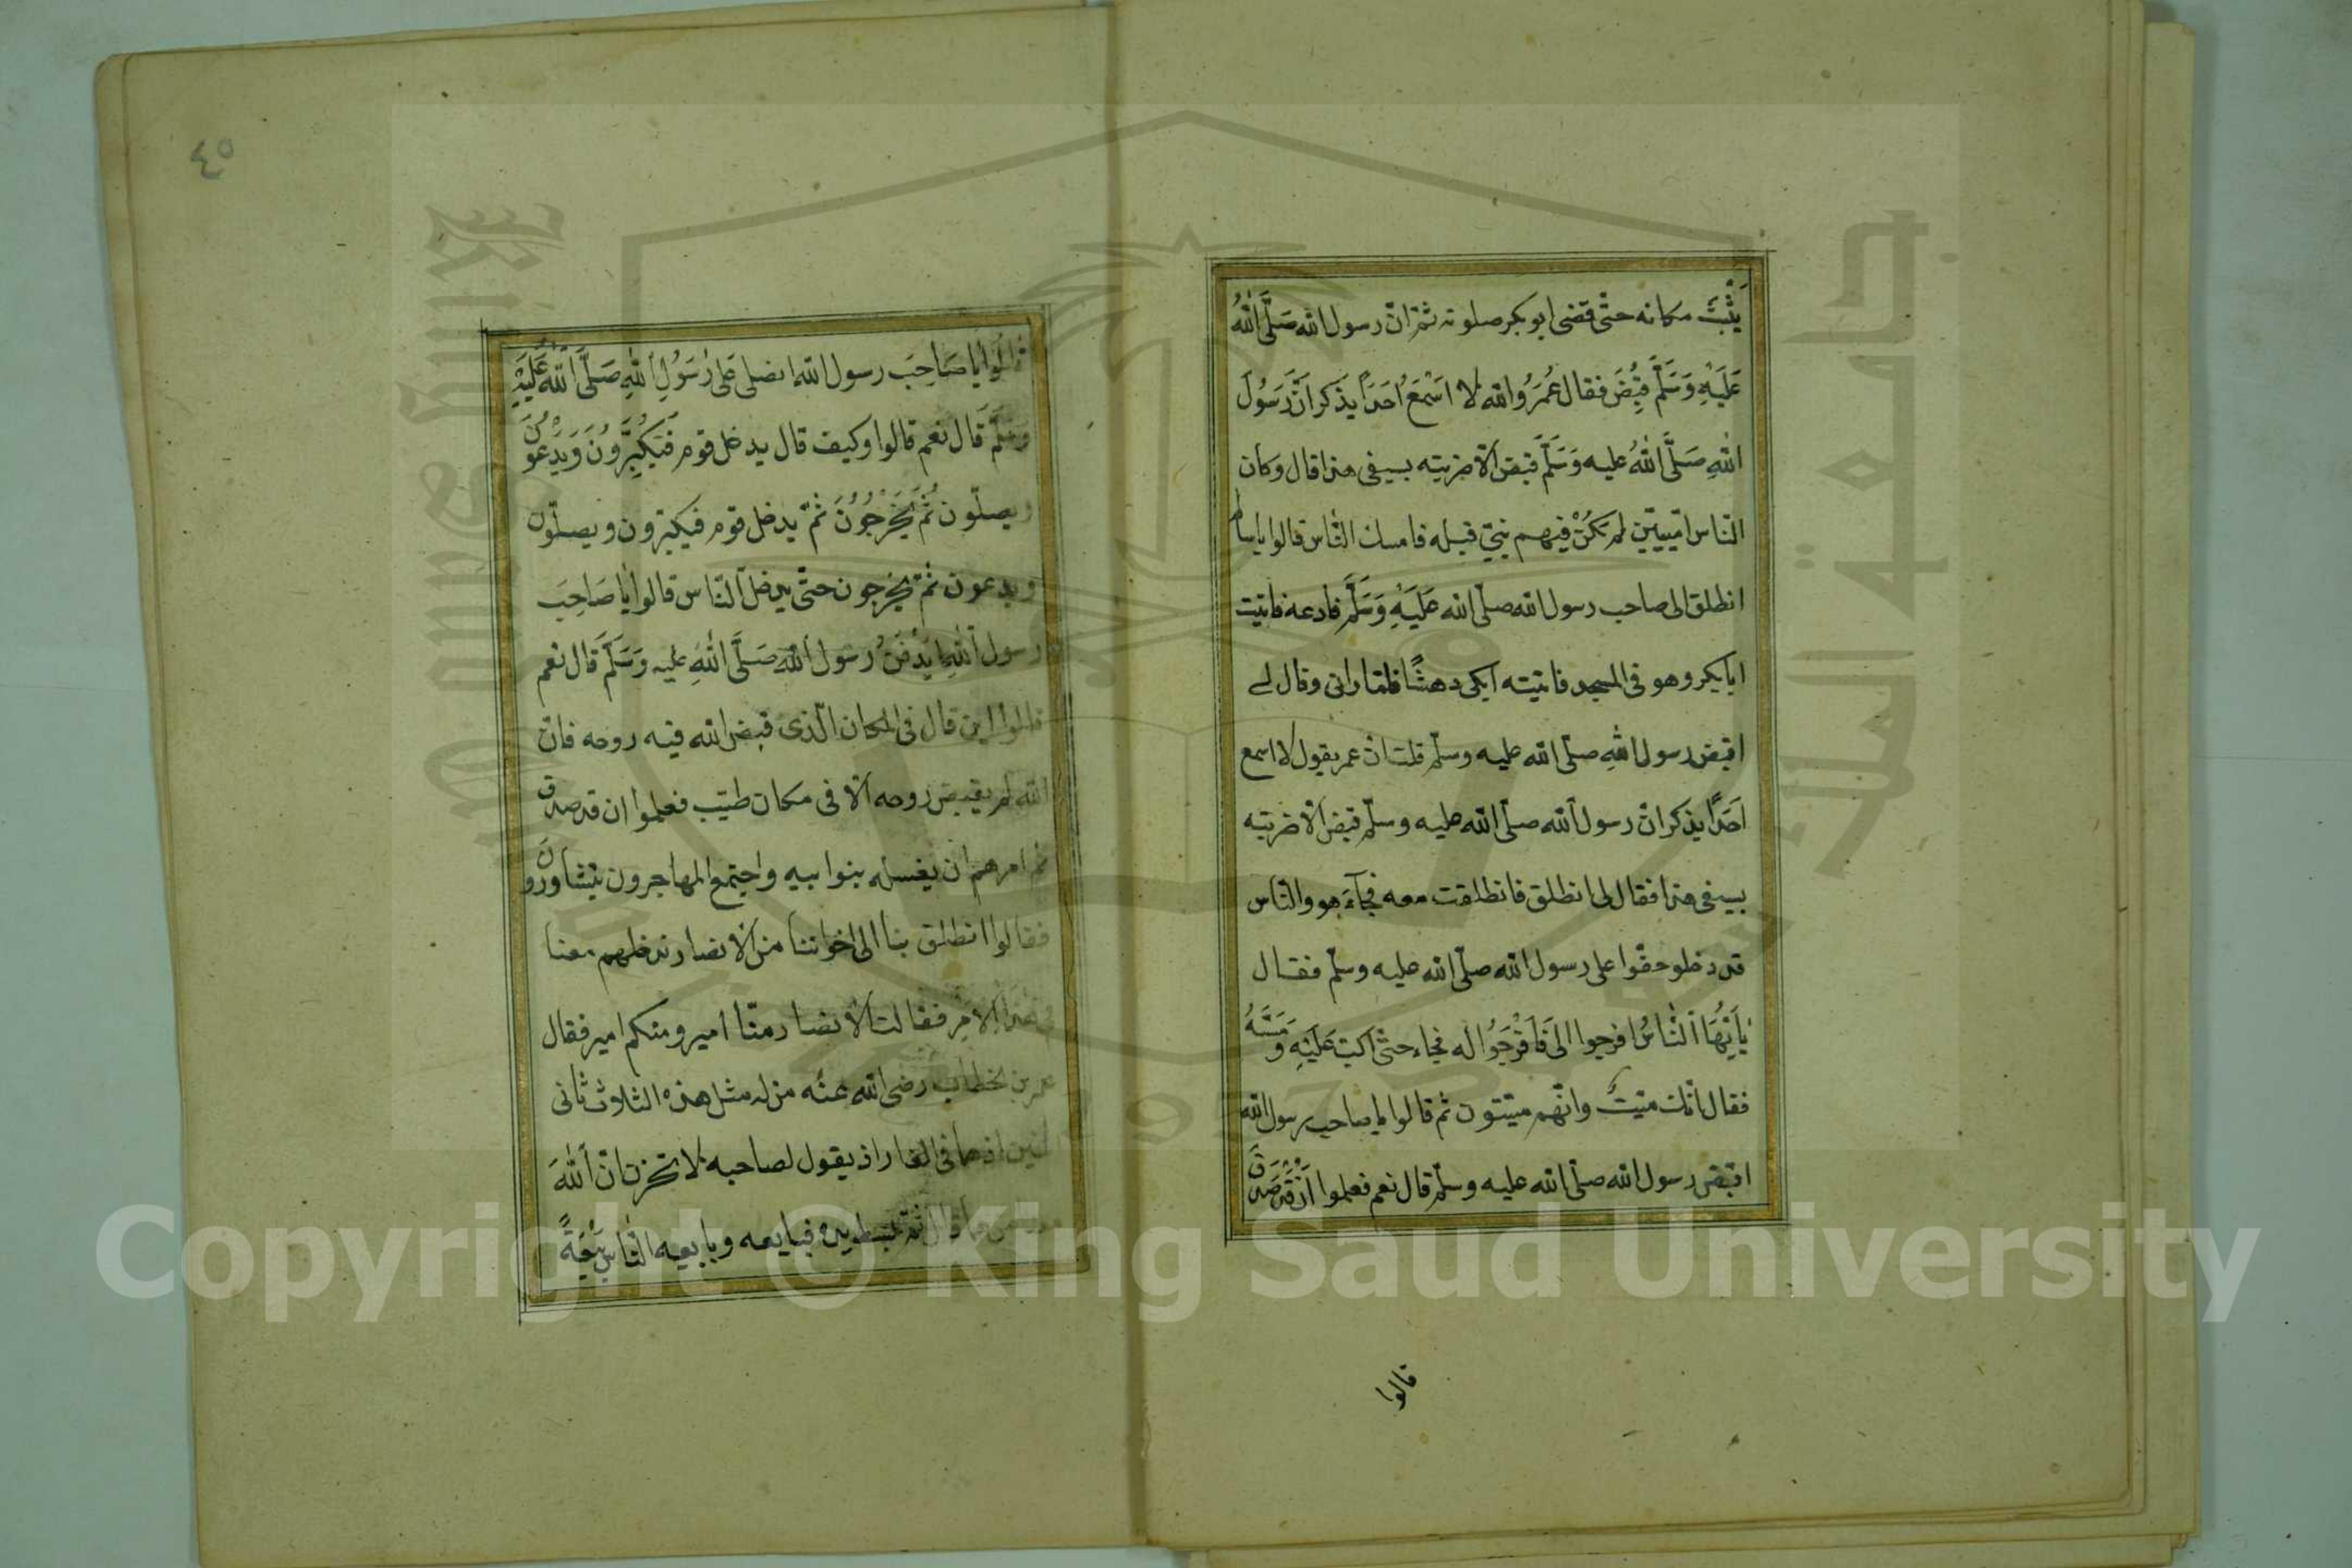 يَثْبُتَ مكانه حتّى قضى ابو بكر صلوته ثمّ انّ رسول الله صَلَّى اللهُ
عَلَيْهِ وَسَلَّمَ قُبِضَ فقال عُمَرُ والله لا اَسْمَعُ اَحَدًا يذكر اَنَّ رَسُولَ
اللهِ صَلَّى اللهُ عليه وَسَلَّمَ قبض الّا ضربته بسيفى هذا قال وكان
النّاس امّيين لم يَكُنْ فيهم نبيّ قبله فامسك النّاس قالوا يا سالم
انطلق الى صاحب رسول الله صلّى الله عَلَيْهِ وَسَلَّمَ فادعه فاتيت
ابا بكر وهو فى المسجد فاتيته ابكى دهشًا فلمّا رانى وقال لے
اقبض رسول اللهِ صلّى الله عليه وسلّم قلت انّ عمر يقول لا اسمع
اَحَدًا يذكر انّ رسول الله صلّى الله عليه وسلّم قبض الّا ضربته
بسيفى هذا فقال لى انطلق فانطلقت معه فجآءَ هو والنّاس
قد دخلو حفّوا على رسول الله صلّى الله عليه وسلّم فقال
يٰاَيُّهَا النّاسُ افرجوا الىَ فَاَفْرَجُوا له فجاء حتّى اكبّ عَلَيْهِ وَمَسَّهُ
فقال انّك ميّتٌ وانّهم ميّتون ثم قالوا يا صاحب رسول الله
اقبض رسول الله صلّى الله عليه وسلّم قال نعم فعلموا اَنْ قَدْ صَدَقَ
قالوا
٤٥
قالوا يا صَاحِبَ رسول الله انصلى عَلى رَسُولِ اللهِ صَلَّى اللهُ عَلَيْهِ
وَسَلَّمَ قَال نعم قالوا وكيف قال يدخل قوم فَيُكَبِّرُونَ وَيَدْعُونَ
ويصلّون ثُمَّ يَخْرُجُونَ ثمّ يدخل قوم فيكبّرون ويصلّون
ويدعون ثمّ يخرجون حتّى يدخل النّاس قالوا يا صَاحِبَ
رسول اللهِ ايُدْفَنُ رسول الله صَلَّى اللهُ عليه وَسَلَّمَ قال نعم
قالوا اين قال فى المكان الّذى قبض الله فيه روحه فانّ
الله لم يقبض روحه الّا فى مكان طيّب فعلموا ان قد صدق
ثم امرهم ان يغسله بنوا ابيه واجتمع المهاجرون يتشاورونَ
فقالوا انطلق بنا الى اخواننا من الانصار ندخلهم معنا
فى هذا الامر فقالت الانصار منّا امير ومنكم امير فقال
عمر بن لخطاب رضى الله عنه من له مثل هذه الثلاث ثانى
اثنين اذهما فى الغار اذ يقول لصاحبه لا تحزن انّ اللهَ
قال ثم بسط يده فبايعه وبايعه النّاس بَيْعَةً